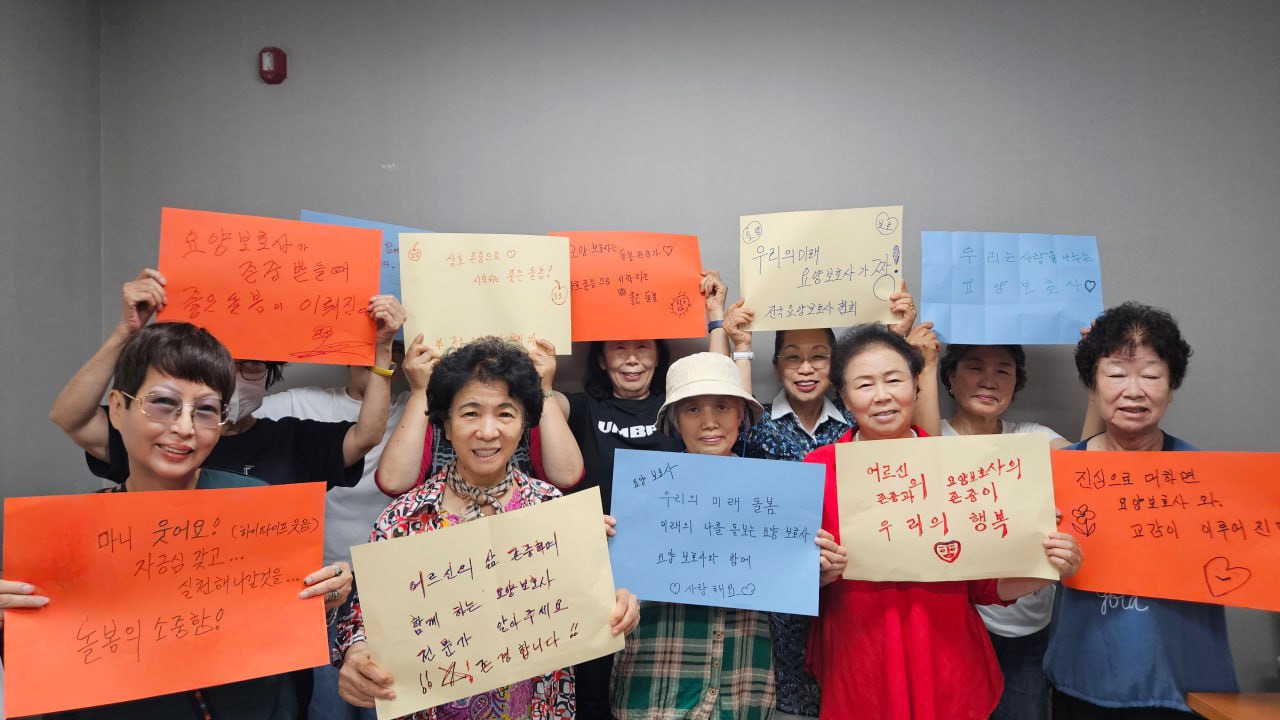 요양보호사가
존중 받을때
좋은 돌봄이 이뤄진
상호 존중으로
시작되는 좋은 돌봄!
요양 보호사는
돌봄 전문가
상호존중 으로 시작되는
좋은 돌봄
우리의미래
요양보호사가 간다!
전국요양보호사 협회
우리는사랑을 나누는
요양보호사
UMBR
마니 웃어요! (하이파이프웃음)
자긍심 갖고...
실천해나갈것을...
돌봄의 소중함!
어르신의 삶 존중하며
함께 하는 요양보호사
전문가 알아주세요
존경합니다!!
요양 보호사
우리의 미래 돌봄
미래의 나를 돌보는 요양 보호사
요양 보호사와 함께
사랑해요
어르신의 요양보호사의
존중과 존중이
우리의 행복
진심으로 대하면
요양보호사 와
교감이 이루어 진